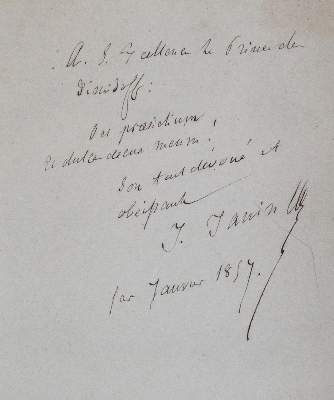 A. S. Excellence le Prince de
Dimidoff.
O et præsidium
et dulce decus meum!
Son tout dévoué et
obéissant
J. Janin
1er Janvier 1857.